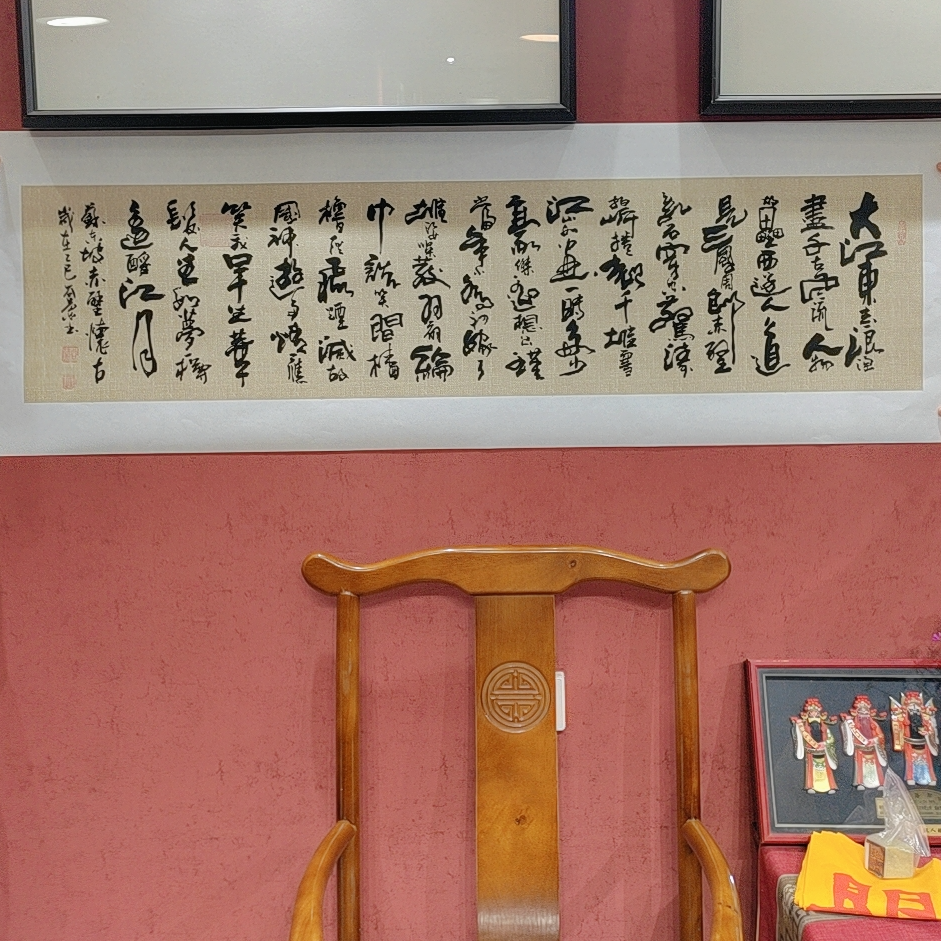 大江東去浪淘
盡千古風流人物
故壘西邊人道
是三國周郎赤壁
亂石穿空驚濤
拍岸捲起千堆雪
江山如畫一時多少
豪傑遙想公瑾
當年小喬初嫁了
雄姿英發羽扇綸
巾談笑間檣
櫓灰飛煙滅故
國神遊多情應
笑我早生華
髮人生如夢一樽
還酹江月
蘇東坡赤壁懷古
歲在乙巳